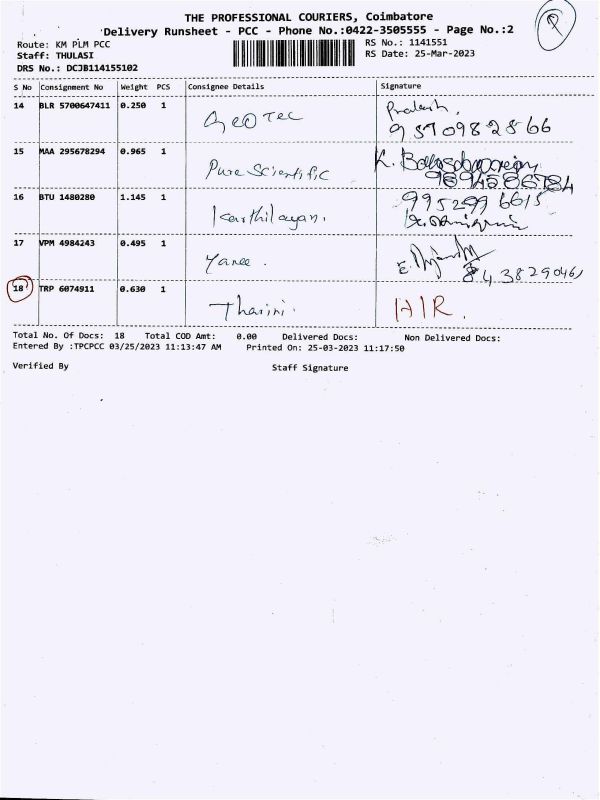 THE PROFESSIONAL COURIERS, Coimbatore
Delivery Runsheet - PCC - Phone No.:0422-3505555 - Page No.:2
Route: KM PLM PCC
RS No.: 1141551
Staff: THULASI
RS Date: 25-Mar-2023
DRS No.: DCJB114155102
S No Consignment No Weight PCS Consignee Details Signature
14 BLR 5700647411 0.250 1 GeoTec Prakash.
9570982866
15 MAA 295678294 0.965 1 Pure Scientific K.
16 BTU 1480280 1.145 1 Karthilayan. 9952996615
17 VPM 4984243 0.495 1 Yanee.
8438290461
18 TRP 6074911 0.630 1 Tharini. HIR.
Total No. Of Docs: 18 Total COD Amt: 0.00 Delivered Docs: Non Delivered Docs:
Entered By :TPCPCC 03/25/2023 11:13:47 AM Printed On: 25-03-2023 11:17:50
Verified By Staff Signature